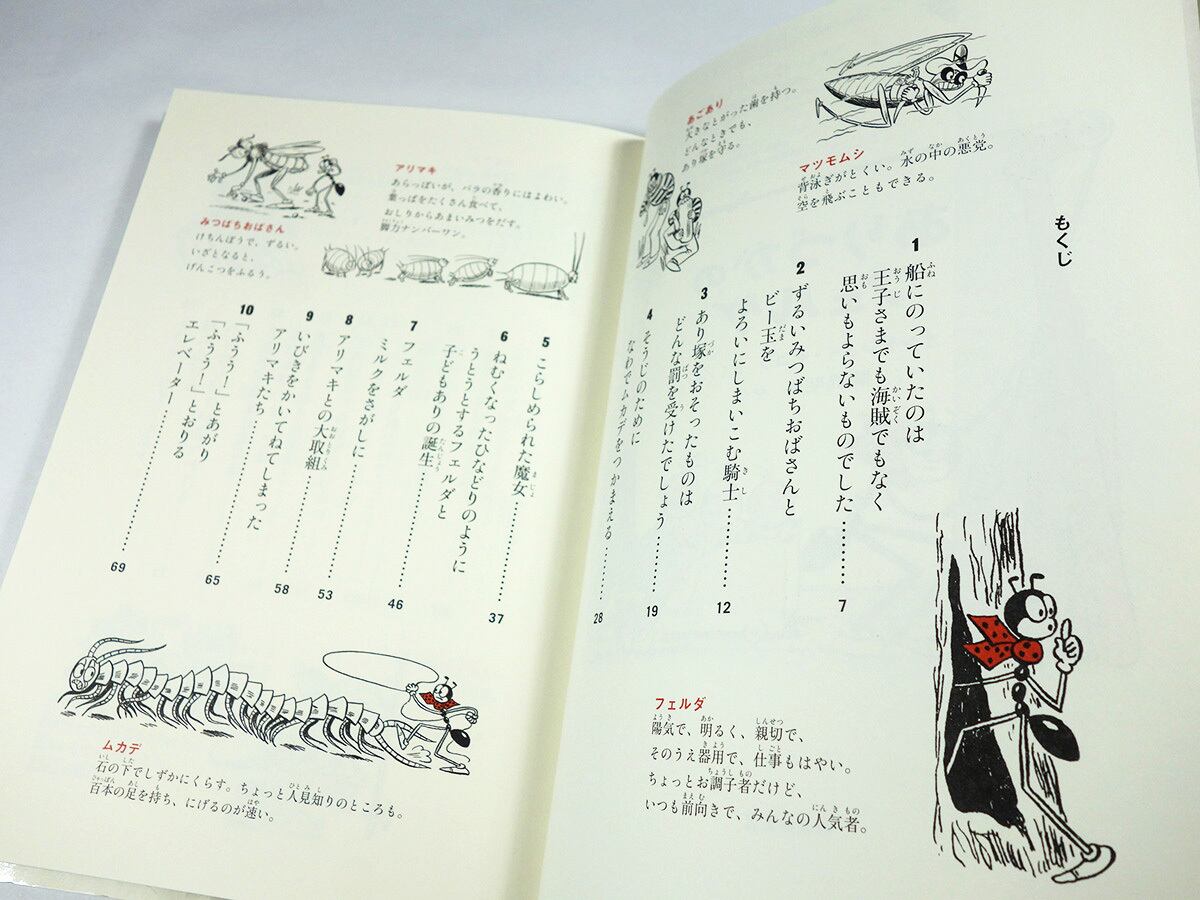 もくじ
1 船にのっていたのは
王子さまでも海賊でもなく
思いもよらないものでした………7
2 ずるいみつばちおばさんと
ビー玉を
よろいにしまいこむ騎士………12
3 あり塚をおそったものは
どんな罰を受けたでしょう………19
4 そうじのために
なわでムカデをつかまえる………28
マツモムシ
背泳ぎがとくい。水の中の悪党。
空を飛ぶこともできる。
あごあり
大きなとがった歯を持つ。
どんなときでも、
あり塚を守る。
フェルダ
陽気で、明るく、親切で、
そのうえ器用で、仕事もはやい。
ちょっとお調子者だけど、
いつも前向きで、みんなの人気者。
5 こらしめられた魔女………37
6 ねむくなったひなどりのように
うとうとするフェルダと
子どもありの誕生………46
7 フェルダ
ミルクをさがしに………53
8 アリマキとの大取組………58
9 いびきをかいてねてしまった
アリマキたち………65
10 「ふうう!」とあがり
「ふうう!」とおりる
エレベーター………69
アリマキ
あらっぽいが、バラの香りにはよわい。
葉っぱをたくさん食べて、
おしりからあまいみつをだす。
脚力ナンバーワン。
みつばちおばさん
けちんぼうで、ずるい。
いざとなると、
げんこつをふるう。
ムカデ
石の下でしずかにくらす。ちょっと人見知りのところも。
百本の足を持ち、にげるのが速い。